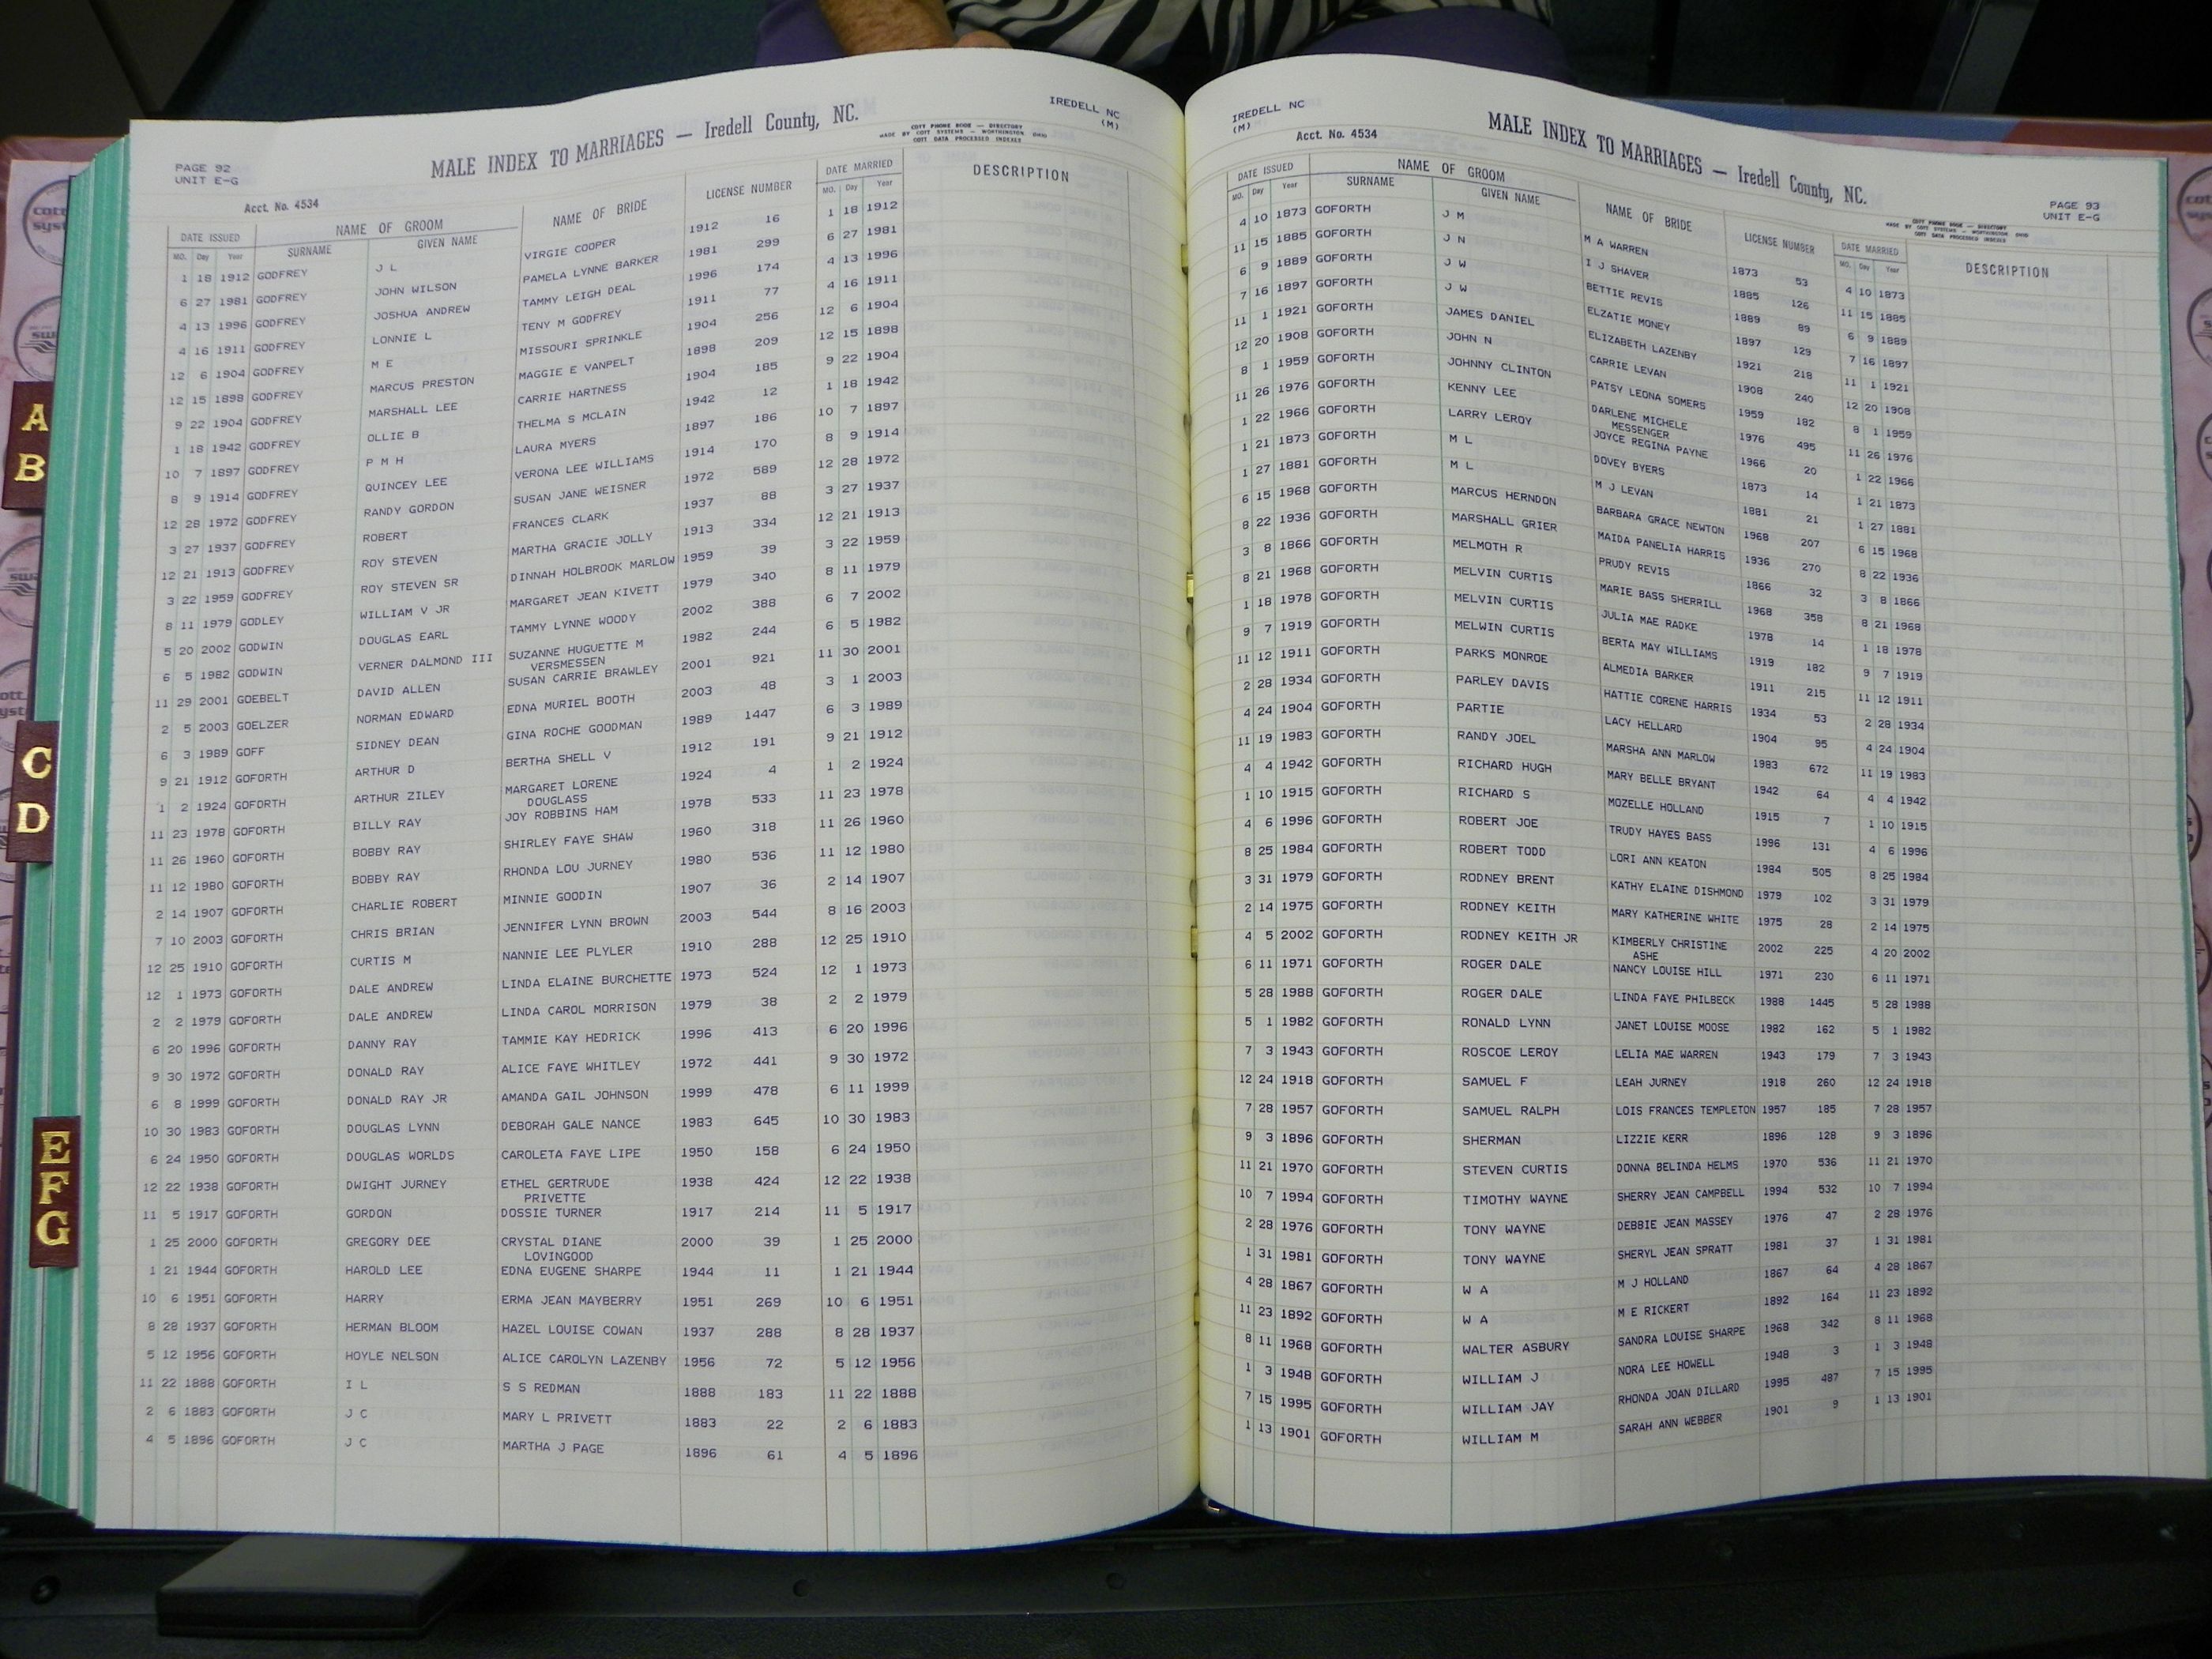 PAGE 92
UNIT E-G
Acct. No. 4534
MALE INDEX TO MARRIAGES — Iredell County, NC.
COTT PHONE BOOK — DIRECTORY
MADE BY COTT SYSTEMS — WORTHINGTON OHIO
COTT DATA PROCESSED INDEXES
IREDELL NC
(M)
DATE ISSUED NAME OF GROOM NAME OF BRIDE LICENSE NUMBER DATE MARRIED DESCRIPTION
MO. Day Year SURNAME GIVEN NAME MO. Day Year
1 18 1912 GODFREY J L VIRGIE COOPER 1912 16 1 18 1912
6 27 1981 GODFREY JOHN WILSON PAMELA LYNNE BARKER 1981 299 6 27 1981
4 13 1996 GODFREY JOSHUA ANDREW TAMMY LEIGH DEAL 1996 174 4 13 1996
4 16 1911 GODFREY LONNIE L TENY M GODFREY 1911 77 4 16 1911
12 6 1904 GODFREY M E MISSOURI SPRINKLE 1904 256 12 6 1904
12 15 1898 GODFREY MARCUS PRESTON MAGGIE E VANPELT 1898 209 12 15 1898
9 22 1904 GODFREY MARSHALL LEE CARRIE HARTNESS 1904 185 9 22 1904
1 18 1942 GODFREY OLLIE B THELMA S MCLAIN 1942 12 1 18 1942
10 7 1897 GODFREY P M H LAURA MYERS 1897 186 10 7 1897
8 9 1914 GODFREY QUINCEY LEE VERONA LEE WILLIAMS 1914 170 8 9 1914
12 28 1972 GODFREY RANDY GORDON SUSAN JANE WEISNER 1972 589 12 28 1972
3 27 1937 GODFREY ROBERT FRANCES CLARK 1937 88 3 27 1937
12 21 1913 GODFREY ROY STEVEN MARTHA GRACIE JOLLY 1913 334 12 21 1913
3 22 1959 GODFREY ROY STEVEN SR DINNAH HOLBROOK MARLOW 1959 39 3 22 1959
8 11 1979 GODLEY WILLIAM V JR MARGARET JEAN KIVETT 1979 340 8 11 1979
5 20 2002 GODWIN DOUGLAS EARL TAMMY LYNNE WOODY 2002 388 6 7 2002
6 5 1982 GODWIN VERNER DALMOND III SUZANNE HUGUETTE M 1982 244 6 5 1982
VERSMESSEN
11 29 2001 GOEBELT DAVID ALLEN SUSAN CARRIE BRAWLEY 2001 921 11 30 2001
2 5 2003 GOELZER NORMAN EDWARD EDNA MURIEL BOOTH 2003 48 3 1 2003
6 3 1989 GOFF SIDNEY DEAN GINA ROCHE GOODMAN 1989 1447 6 3 1989
9 21 1912 GOFORTH ARTHUR D BERTHA SHELL V 1912 191 9 21 1912
1 2 1924 GOFORTH ARTHUR ZILEY MARGARET LORENE 1924 4 1 2 1924
DOUGLASS
11 23 1978 GOFORTH BILLY RAY JOY ROBBINS HAM 1978 533 11 23 1978
11 26 1960 GOFORTH BOBBY RAY SHIRLEY FAYE SHAW 1960 318 11 26 1960
11 12 1980 GOFORTH BOBBY RAY RHONDA LOU JURNEY 1980 536 11 12 1980
2 14 1907 GOFORTH CHARLIE ROBERT MINNIE GOODIN 1907 36 2 14 1907
7 10 2003 GOFORTH CHRIS BRIAN JENNIFER LYNN BROWN 2003 544 8 16 2003
12 25 1910 GOFORTH CURTIS M NANNIE LEE PLYLER 1910 288 12 25 1910
12 1 1973 GOFORTH DALE ANDREW LINDA ELAINE BURCHETTE 1973 524 12 1 1973
2 2 1979 GOFORTH DALE ANDREW LINDA CAROL MORRISON 1979 38 2 2 1979
6 20 1996 GOFORTH DANNY RAY TAMMIE KAY HEDRICK 1996 413 6 20 1996
9 30 1972 GOFORTH DONALD RAY ALICE FAYE WHITLEY 1972 441 9 30 1972
6 8 1999 GOFORTH DONALD RAY JR AMANDA GAIL JOHNSON 1999 478 6 11 1999
10 30 1983 GOFORTH DOUGLAS LYNN DEBORAH GALE NANCE 1983 645 10 30 1983
6 24 1950 GOFORTH DOUGLAS WORLDS CAROLETA FAYE LIPE 1950 158 6 24 1950
12 22 1938 GOFORTH DWIGHT JURNEY ETHEL GERTRUDE 1938 424 12 22 1938
PRIVETTE
11 5 1917 GOFORTH GORDON DOSSIE TURNER 1917 214 11 5 1917
1 25 2000 GOFORTH GREGORY DEE CRYSTAL DIANE 2000 39 1 25 2000
LOVINGOOD
1 21 1944 GOFORTH HAROLD LEE EDNA EUGENE SHARPE 1944 11 1 21 1944
10 6 1951 GOFORTH HARRY ERMA JEAN MAYBERRY 1951 269 10 6 1951
8 28 1937 GOFORTH HERMAN BLOOM HAZEL LOUISE COWAN 1937 288 8 28 1937
5 12 1956 GOFORTH HOYLE NELSON ALICE CAROLYN LAZENBY 1956 72 5 12 1956
11 22 1888 GOFORTH I L S S REDMAN 1888 183 11 22 1888
2 6 1883 GOFORTH J C MARY L PRIVETT 1883 22 2 6 1883
4 5 1896 GOFORTH J C MARTHA J PAGE 1896 61 4 5 1896
IREDELL NC
(M)
Acct. No. 4534
MALE INDEX TO MARRIAGES — Iredell County, NC.
COTT PHONE BOOK — DIRECTORY
MADE BY COTT SYSTEMS — WORTHINGTON OHIO
COTT DATA PROCESSED INDEXES
PAGE 93
UNIT E-G
DATE ISSUED NAME OF GROOM NAME OF BRIDE LICENSE NUMBER DATE MARRIED DESCRIPTION
MO. Day Year SURNAME GIVEN NAME MO. Day Year
4 10 1873 GOFORTH J M M A WARREN 1873 53 4 10 1873
11 15 1885 GOFORTH J N I J SHAVER 1885 126 11 15 1885
6 9 1889 GOFORTH J W BETTIE REVIS 1889 89 6 9 1889
7 16 1897 GOFORTH J W ELZATIE MONEY 1897 129 7 16 1897
11 1 1921 GOFORTH JAMES DANIEL ELIZABETH LAZENBY 1921 218 11 1 1921
12 20 1908 GOFORTH JOHN N CARRIE LEVAN 1908 240 12 20 1908
8 1 1959 GOFORTH JOHNNY CLINTON PATSY LEONA SOMERS 1959 182 8 1 1959
11 26 1976 GOFORTH KENNY LEE DARLENE MICHELE 1976 495 11 26 1976
MESSENGER
1 22 1966 GOFORTH LARRY LEROY JOYCE REGINA PAYNE 1966 20 1 22 1966
1 21 1873 GOFORTH M L DOVEY BYERS 1873 14 1 21 1873
1 27 1881 GOFORTH M L M J LEVAN 1881 21 1 27 1881
6 15 1968 GOFORTH MARCUS HERNDON BARBARA GRACE NEWTON 1968 207 6 15 1968
8 22 1936 GOFORTH MARSHALL GRIER MAIDA PANELIA HARRIS 1936 270 8 22 1936
3 8 1866 GOFORTH MELMOTH R PRUDY REVIS 1866 32 3 8 1866
8 21 1968 GOFORTH MELVIN CURTIS MARIE BASS SHERRILL 1968 358 8 21 1968
1 18 1978 GOFORTH MELVIN CURTIS JULIA MAE RADKE 1978 14 1 18 1978
9 7 1919 GOFORTH MELWIN CURTIS BERTA MAY WILLIAMS 1919 182 9 7 1919
11 12 1911 GOFORTH PARKS MONROE ALMEDIA BARKER 1911 215 11 12 1911
2 28 1934 GOFORTH PARLEY DAVIS HATTIE CORENE HARRIS 1934 53 2 28 1934
4 24 1904 GOFORTH PARTIE LACY HELLARD 1904 95 4 24 1904
11 19 1983 GOFORTH RANDY JOEL MARSHA ANN MARLOW 1983 672 11 19 1983
4 4 1942 GOFORTH RICHARD HUGH MARY BELLE BRYANT 1942 64 4 4 1942
1 10 1915 GOFORTH RICHARD S MOZELLE HOLLAND 1915 7 1 10 1915
4 6 1996 GOFORTH ROBERT JOE TRUDY HAYES BASS 1996 131 4 6 1996
8 25 1984 GOFORTH ROBERT TODD LORI ANN KEATON 1984 505 8 25 1984
3 31 1979 GOFORTH RODNEY BRENT KATHY ELAINE DISHMOND 1979 102 3 31 1979
2 14 1975 GOFORTH RODNEY KEITH MARY KATHERINE WHITE 1975 28 2 14 1975
4 5 2002 GOFORTH RODNEY KEITH JR KIMBERLY CHRISTINE 2002 225 4 20 2002
ASHE
6 11 1971 GOFORTH ROGER DALE NANCY LOUISE HILL 1971 230 6 11 1971
5 28 1988 GOFORTH ROGER DALE LINDA FAYE PHILBECK 1988 1445 5 28 1988
5 1 1982 GOFORTH RONALD LYNN JANET LOUISE MOOSE 1982 162 5 1 1982
7 3 1943 GOFORTH ROSCOE LEROY LELIA MAE WARREN 1943 179 7 3 1943
12 24 1918 GOFORTH SAMUEL F LEAH JURNEY 1918 260 12 24 1918
7 28 1957 GOFORTH SAMUEL RALPH LOIS FRANCES TEMPLETON 1957 185 7 28 1957
9 3 1896 GOFORTH SHERMAN LIZZIE KERR 1896 128 9 3 1896
11 21 1970 GOFORTH STEVEN CURTIS DONNA BELINDA HELMS 1970 536 11 21 1970
10 7 1994 GOFORTH TIMOTHY WAYNE SHERRY JEAN CAMPBELL 1994 532 10 7 1994
2 28 1976 GOFORTH TONY WAYNE DEBBIE JEAN MASSEY 1976 47 2 28 1976
1 31 1981 GOFORTH TONY WAYNE SHERYL JEAN SPRATT 1981 37 1 31 1981
4 28 1867 GOFORTH W A M J HOLLAND 1867 64 4 28 1867
11 23 1892 GOFORTH W A M E RICKERT 1892 164 11 23 1892
8 11 1968 GOFORTH WALTER ASBURY SANDRA LOUISE SHARPE 1968 342 8 11 1968
1 3 1948 GOFORTH WILLIAM J NORA LEE HOWELL 1948 3 1 3 1948
7 15 1995 GOFORTH WILLIAM JAY RHONDA JOAN DILLARD 1995 487 7 15 1995
1 13 1901 GOFORTH WILLIAM M SARAH ANN WEBBER 1901 9 1 13 1901
A
B
C
D
E
F
G